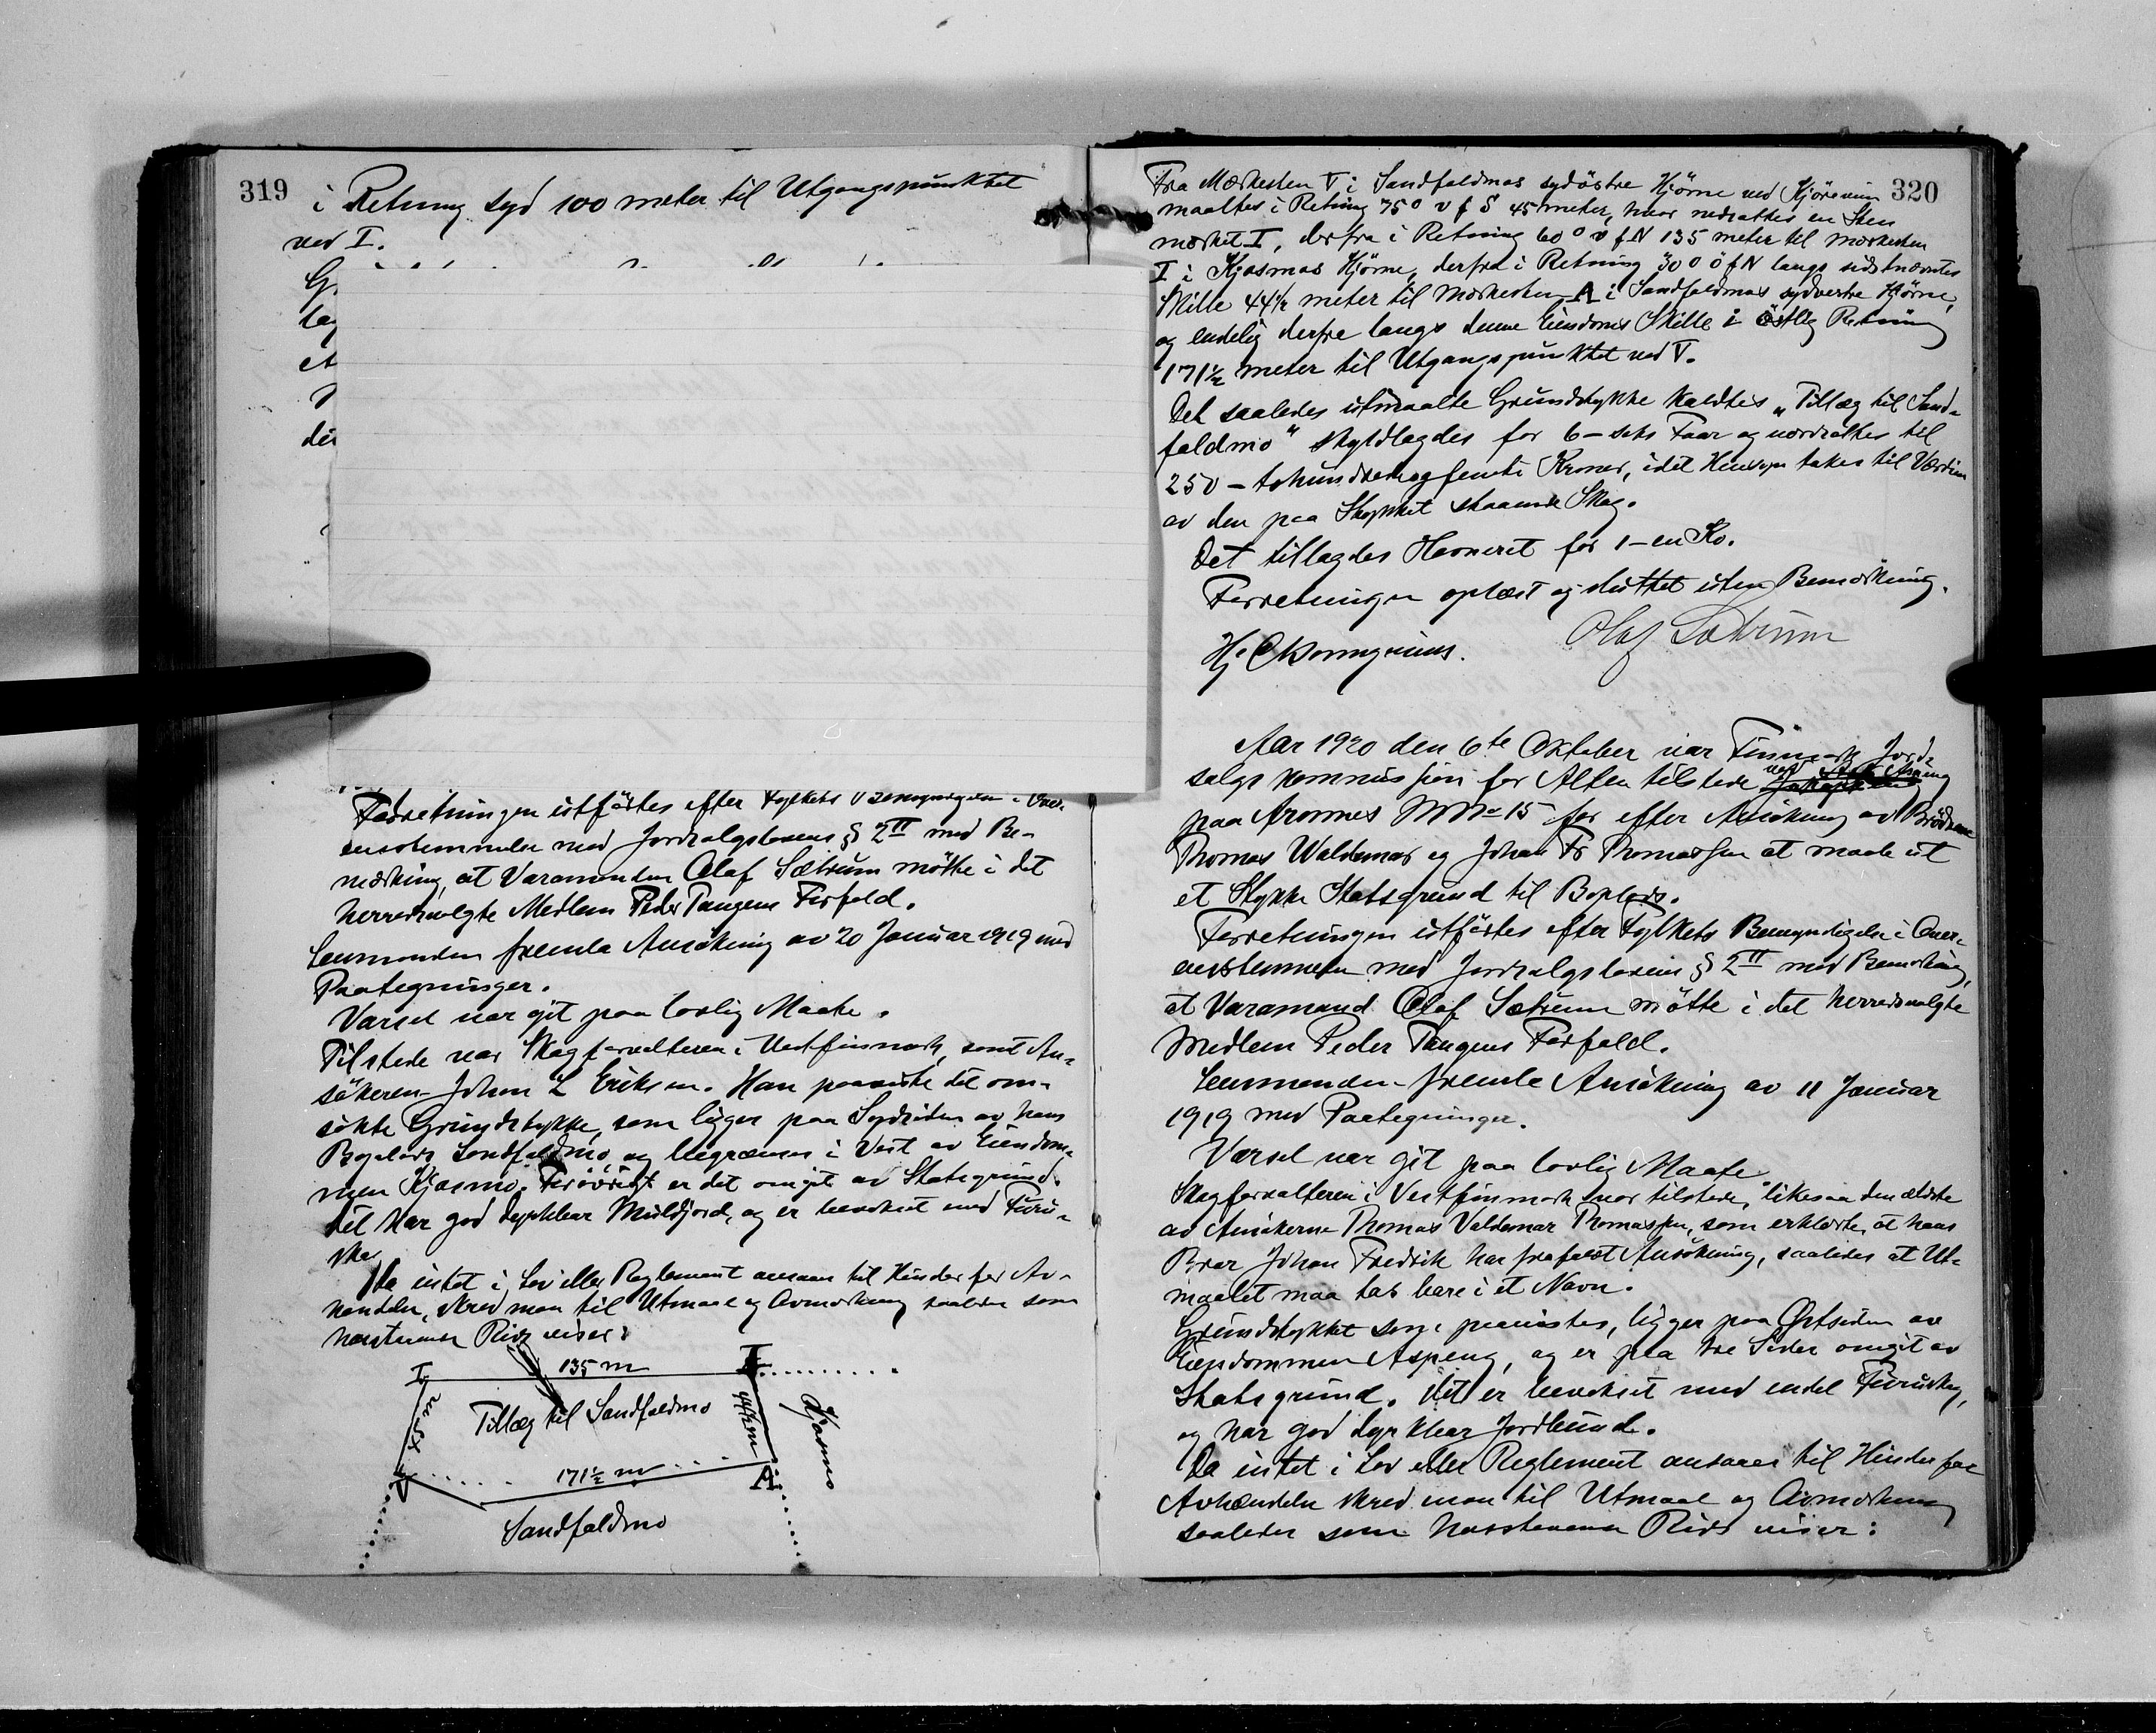 319
i Retning syd 100 meter til Utgangspunktet
ved I.
G
læg
et
dis
Forretningen utførtes efter Fylkets Bemyndigelse i Over-
ensstemmelse med Jordsalgslovens § 2II med Be-
merkning, at Varamanden Olaf Sætrum møtte i det
herredsvalgte Medlem Peder Tangens Forfald.
Lensmanden fremla Ansøkning av 20 Januar 1919 med
Paategninger.
Varsel var git paa lovlig Maate.
Tilstede var Skogforvalteren i Vestfinmark, samt An-
søkeren Johan L Eriksen. Han paaviste det om-
søkte Grundstykke, som ligger paa Sydsiden av hans
Boplads Sandfaldmo, og begrænses i Vest av Eiendom-
men Kjosmo. Forøvrigt er det omgit av Statsgrund.
Det har god dyrkbar Muldjord, og er bevokset med Furu-
skog
Da intet i Lov eller Reglement ansaaes til Hinder for Av-
hændelse, skred man til Utmaal og Avmerkning saaledes som
hosstaaende Rids viser:
I 135 m I
45 m
Tillæg til Sandfaldmo
44½ m
Kjosmo
V 171½ m A
Sandfaldmo
320
Fra Merkesten V i Sandfaldmos sydøstre Hjørne ved Kjøreveien
maaltes i Retning 75° v f S 45 meter, hvor nedsattes en Sten
merket I, derfra i Retning 60° v f N 135 meter til Merkesten
I i Kjosmos Hjørne, derfra i Retning 30° ø f N langs sidstnævntes
Skille 44½ meter til Merkesten A i Sandfaldmos sydvestre Hjørne,
og endelig derfra langs denne Eiendoms Skille i østlig Retning
171½ meter til Utgangspunktet ved V.
Det saaledes utmaalte Grundstykke kaldtes „Tillæg til Sand-
faldmo" skyldlagdes for 6 – seks Faar og værdsattes til
250 – tohundredeogfemti Kroner, idet Hensyn takes til Værdien
av den paa Stykket staaende Skog.
Det tillagdes Havneret for 1 – en Ko.
Forretningen oplæst og sluttet uten Bemerkning.
Olaf Sætrum
Aar 1920 den 6te Oktober var Finmark Jord-
salgskommission for Alten tilstede ved
paa Aronnes M No 15 for efter Ansøkning av Brødrene
Thomas Waldemar og Johan Fr Thomassen at maale ut
et Stykke Statsgrund til Boplads.
Forretningen utførtes efter Fylkets Bemyndigelse i Over-
ensstemmelse med Jordsalgslovens § 2II med Bemerkning,
at Varamand Olaf Sætrum møtte i det herredsvalgte
Medlem Peder Tangens Forfald.
Lensmanden fremla Ansøkning av 11 Januar
1919 med Paategninger.
Varsel var git paa lovlig Maate
Skogforvalteren i Vestfinmark var tilstede, likesaa den ældste
av Ansøkerne Thomas Valdemar Thomassen, som erklærte, at hans
Bror Johan Fredrik har frafaldt Ansøkning, saaledes at Ut-
maalet maa tas bare i et Navn.
Grundstykket som paavistes, ligger paa Østsiden av
Eiendommen Aspeng, og er paa tre Sider omgit av
Statsgrund. Det er bevokset med endel Furuskog,
og har god dyrkbar Jordbund.
Da intet i Lov eller Reglement ansaaes til Hinder for
Avhændelse skred man til Utmaal og Avmerkning
saaledes som hosstaaende Rids viser: